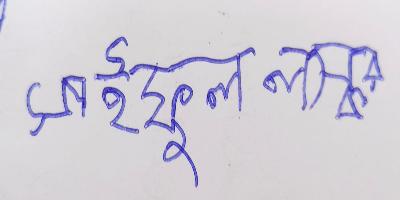 সাইফুল লস্কর